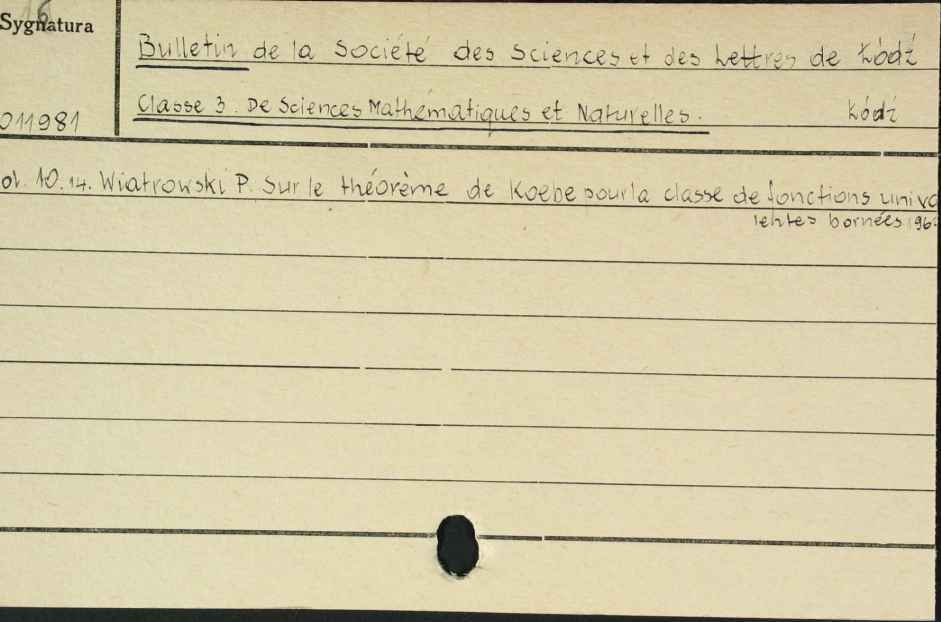 16
Sygnatura
Bulletin de la Société des Sciences et des Lettres de Łódź
011981
Classe 3. De Sciences Mathématiques et Naturelles. Łódź
ol. 10.14. Wiatrowski P. Sur le théorème de Koebe pour la classe de fonctions univa
lentes bornées 196